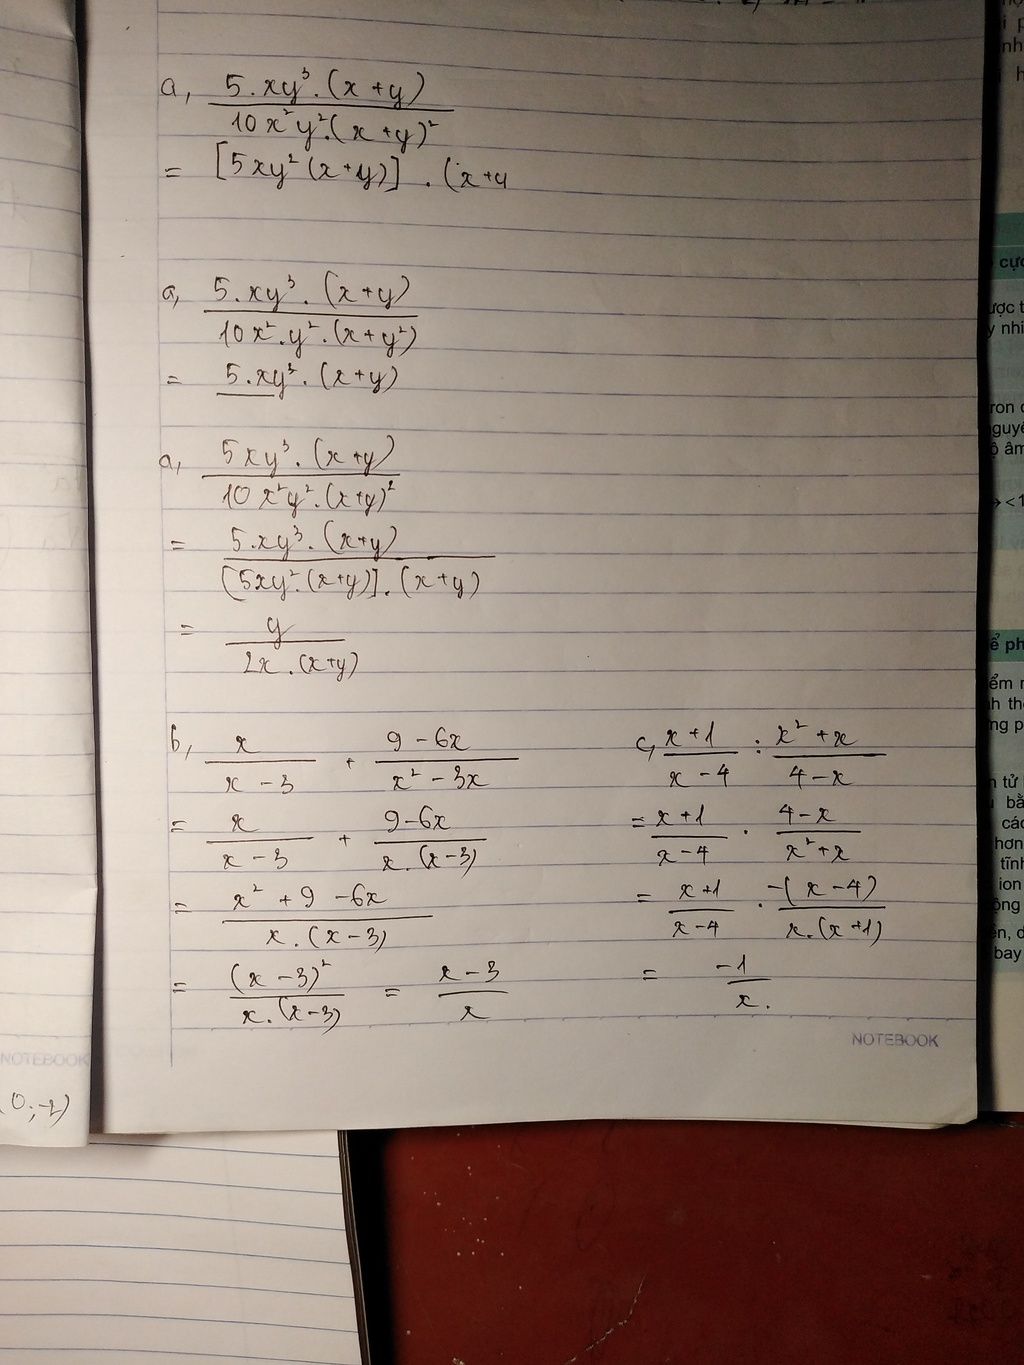 a, 5.xy³.(x+y)
10x²y².(x+y)²
= [5xy²(x+y)] . (x+y
a, 5.xy³.(x+y)
10x².y².(x+y²)
= 5.xy³.(x+y)
a, 5xy³.(x+y)
10x²y².(x+y)²
= 5.xy³.(x+y)
[5xy².(x+y)].(x+y)
= y
2x.(x+y)
b, x/(x-3) + (9-6x)/(x²-3x)
= x/(x-3) + (9-6x)/(x.(x-3))
= (x²+9-6x)/(x.(x-3))
= (x-3)²/(x.(x-3)) = (x-3)/x
c, (x+1)/(x-4) : (x²+x)/(4-x)
= (x+1)/(x-4) . (4-x)/(x²+x)
= (x+1)/(x-4) . -(x-4)/(x.(x+1))
= -1/x.
NOTEBOOK
NOTEBOOK
(0;-1)
cực
ược t
y nhi
ron c
guyê
ộ âm
<1
ể ph
ểm r
h thờ
ng p
n tử
u bằ
các
hơn
tĩnh
ion
ộng
ên, d
bay